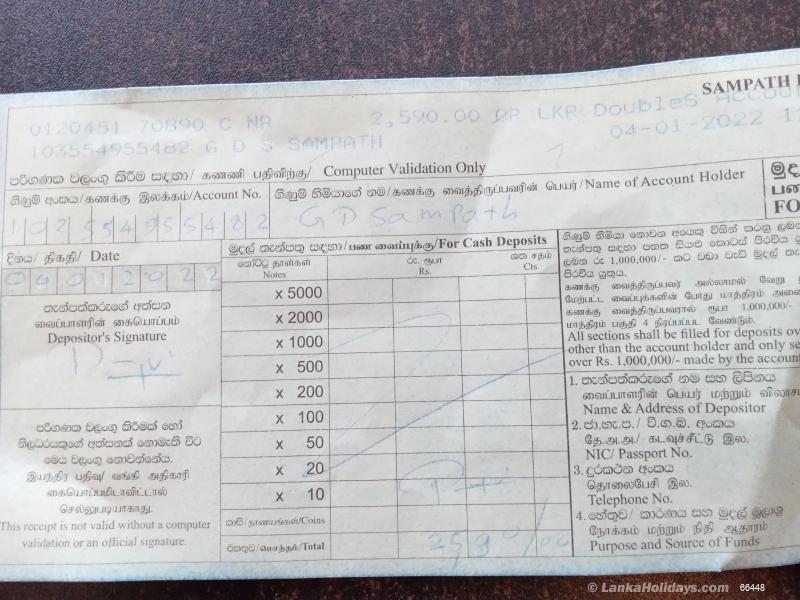 SAMPATH
0120451 70890 C NR 2,590.00 CR LKR DoubleS Accou
103554955482 G D S SAMPATH 04-01-2022 11
පරිගණක වලංගු කිරීම සඳහා/ கணணி பதிவிற்கு/ Computer Validation Only
ගිණුම් අංකය/கணக்கு இலக்கம்/Account No.
ගිණුම් හිමියාගේ නම/கணக்கு வைத்திருப்பவரின் பெயர்/Name of Account Holder
G D Sampath
FO
දිනය/ திகதி/ Date
04012022
මුදල් තැන්පතු සඳහා/பண வைப்புக்கு/For Cash Deposits
නෝට්ටු தாள்கள் රු. ரூபா ශත சதம்
Notes Rs. Cts.
x 5000
x 2000
x 1000
x 500
x 200
x 100
x 50
x 20
x 10
කාසි/நாணயங்கள்/Coins
එකතුව/மொத்தம்/Total 2590/00
තැන්පත්කරුගේ අත්සන
வைப்பாளரின் கையொப்பம்
Depositor's Signature
පරිගණක වලංගු කිරීමක් හෝ
නිලධරයකුගේ අත්සනක් නොමැති විට
මෙය වලංගු නොවන්නේය.
இயந்திர பதிவு/ வங்கி அதிகாரி
கையொப்பமிடாவிட்டால்
செல்லுபடியாகாது.
This receipt is not valid without a computer
validation or an official signature.
ගිණුම් හිමියා නොවන අයෙකු විසින් කරනු ලබන
තැන්පතු සඳහා පහත සියළු කොටස් පිරවිය
ලබන රු 1,000,000/- කට වඩා වැඩි මුදල්
පිරවිය යුතුය.
கணக்கு வைத்திருப்பவர் அல்லாமல் வேறு
மேற்பட்ட வைப்புக்களின் போது மாத்திரம்
கணக்கு வைத்திருப்பவரால் ரூபா 1,000,000/-
மாத்திரம் பகுதி 4 நிரப்பப்பட வேண்டும்.
All sections shall be filled for deposits ov
other than the account holder and only se
over Rs. 1,000,000/- made by the accoun
1. තැන්පත්කරුගේ නම සහ ලිපිනය
வைப்பாளரின் பெயர் மற்றும் விலாச
Name & Address of Depositor
2. ජා.හැ.ප./ වි.ග.බ. අංකය
தே.அ.அ./ கடவுச்சீட்டு இல.
NIC/ Passport No.
3. දුරකථන අංකය
தொலைபேசி இல.
Telephone No.
4. හේතුව/ කාරණය සහ මුදල් මූලාශ්‍ර
நோக்கம் மற்றும் நிதி ஆதாரம்
Purpose and Source of Funds
© LankaHolidays.com 66448